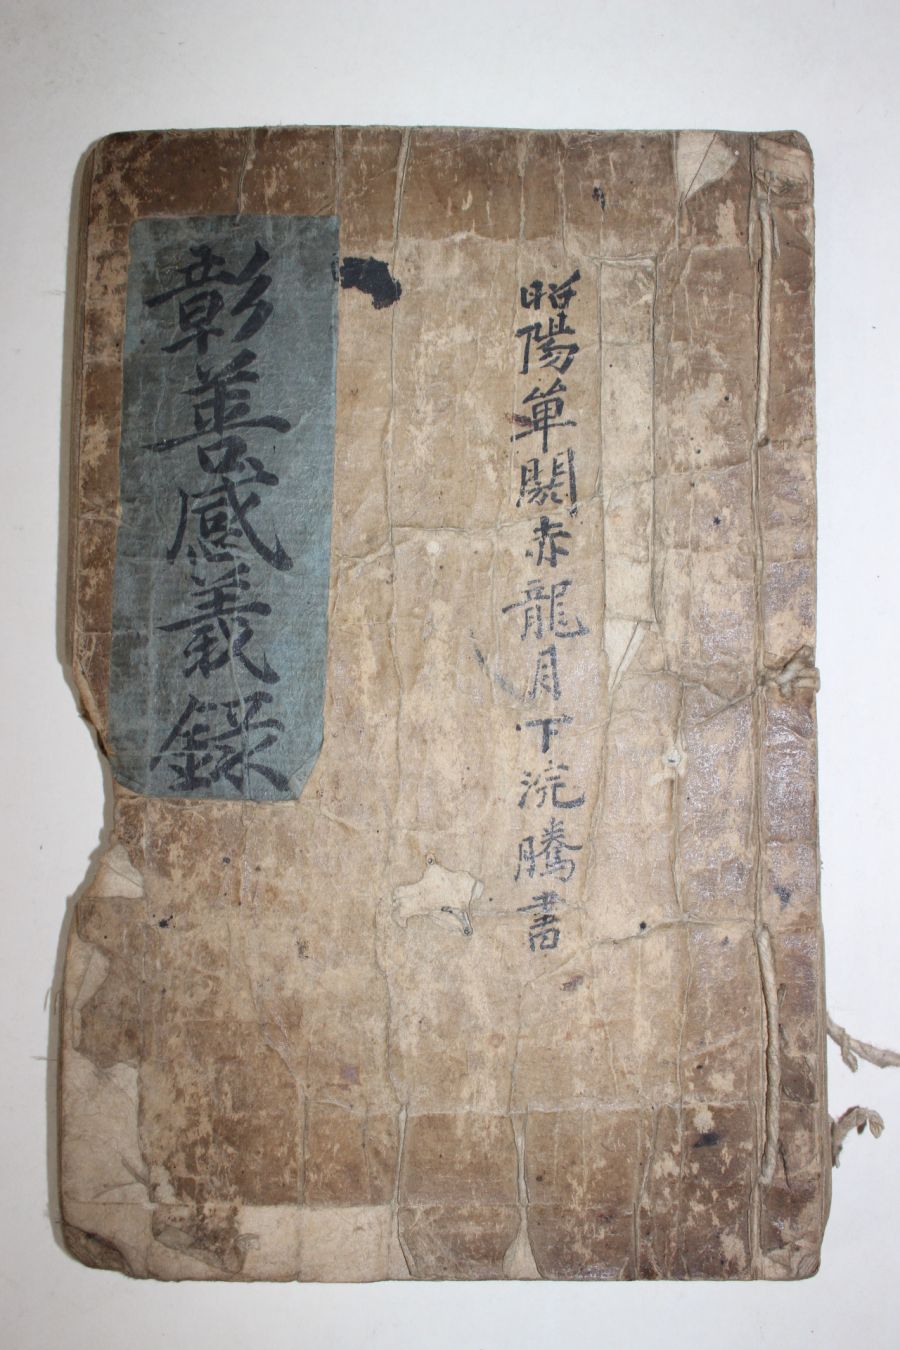 昭陽單閼赤龍月下浣謄書
彰善感義錄